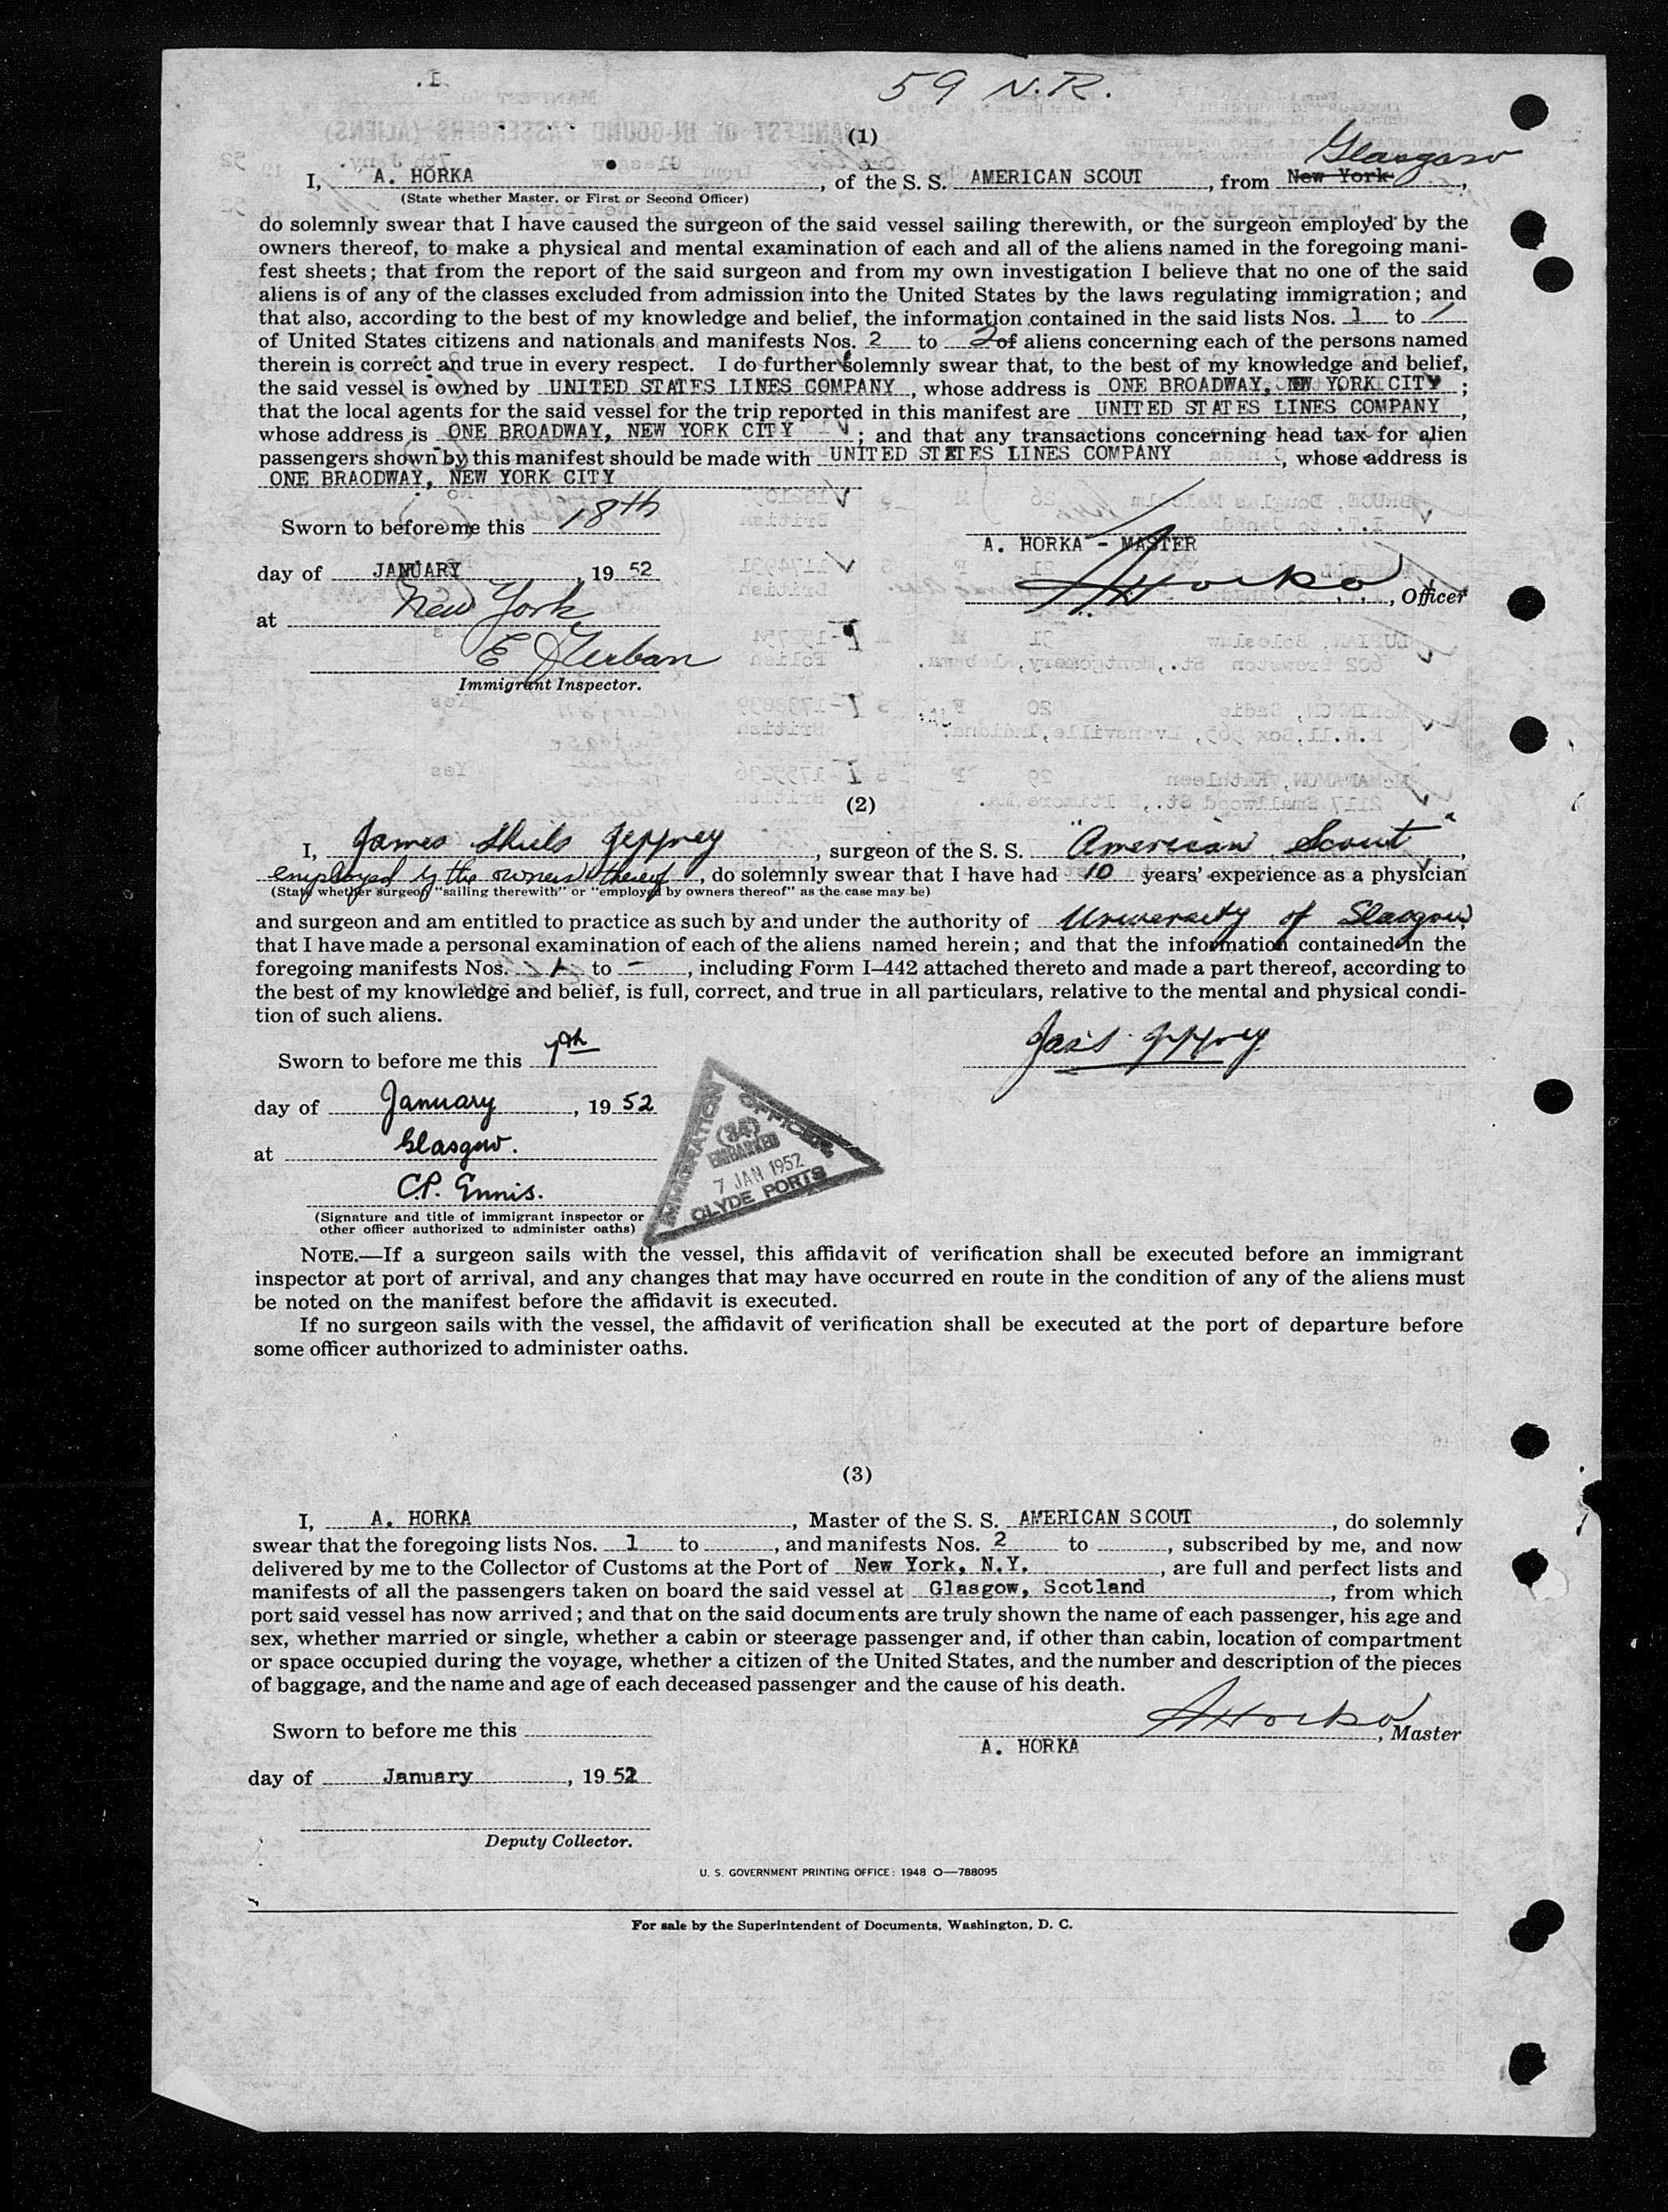 59 N.R.
(1)
Glasgow
I, A. HORKA, of the S. S. AMERICAN SCOUT, from New York,
(State whether Master, or First or Second Officer)
do solemnly swear that I have caused the surgeon of the said vessel sailing therewith, or the surgeon employed by the
owners thereof, to make a physical and mental examination of each and all of the aliens named in the foregoing mani-
fest sheets; that from the report of the said surgeon and from my own investigation I believe that no one of the said
aliens is of any of the classes excluded from admission into the United States by the laws regulating immigration; and
that also, according to the best of my knowledge and belief, the information contained in the said lists Nos. 1 to 1
of United States citizens and nationals and manifests Nos. 2 to 2 of aliens concerning each of the persons named
therein is correct and true in every respect. I do further solemnly swear that, to the best of my knowledge and belief,
the said vessel is owned by UNITED STATES LINES COMPANY, whose address is ONE BROADWAY, NEW YORK CITY;
that the local agents for the said vessel for the trip reported in this manifest are UNITED STATES LINES COMPANY,
whose address is ONE BROADWAY, NEW YORK CITY; and that any transactions concerning head tax for alien
passengers shown by this manifest should be made with UNITED STATES LINES COMPANY, whose address is
ONE BRAODWAY, NEW YORK CITY
Sworn to before me this 18th
A. HORKA - MASTER
day of JANUARY, 1952
A Horka, Officer
at New York
Immigrant Inspector.
(2)
I, James Shiels Jeffrey, surgeon of the S. S. "American Scout",
employed by the owners thereof, do solemnly swear that I have had 10 years' experience as a physician
(State whether surgeon "sailing therewith" or "employed by owners thereof" as the case may be)
and surgeon and am entitled to practice as such by and under the authority of University of Glasgow;
that I have made a personal examination of each of the aliens named herein; and that the information contained in the
foregoing manifests Nos. 1 to -, including Form I-442 attached thereto and made a part thereof, according to
the best of my knowledge and belief, is full, correct, and true in all particulars, relative to the mental and physical condi-
tion of such aliens.
Jas S Jeffrey
Sworn to before me this 7th
day of January, 1952
at Glasgow.
C.P. Ennis.
(Signature and title of immigrant inspector or
other officer authorized to administer oaths)
IMMIGRATION OFFICER
(34)
EMBARKED
7 JAN 1952
CLYDE PORTS
NOTE.—If a surgeon sails with the vessel, this affidavit of verification shall be executed before an immigrant
inspector at port of arrival, and any changes that may have occurred en route in the condition of any of the aliens must
be noted on the manifest before the affidavit is executed.
If no surgeon sails with the vessel, the affidavit of verification shall be executed at the port of departure before
some officer authorized to administer oaths.
(3)
I, A. HORKA, Master of the S. S. AMERICAN SCOUT, do solemnly
swear that the foregoing lists Nos. 1 to , and manifests Nos. 2 to , subscribed by me, and now
delivered by me to the Collector of Customs at the Port of New York, N.Y., are full and perfect lists and
manifests of all the passengers taken on board the said vessel at Glasgow, Scotland, from which
port said vessel has now arrived; and that on the said documents are truly shown the name of each passenger, his age and
sex, whether married or single, whether a cabin or steerage passenger and, if other than cabin, location of compartment
or space occupied during the voyage, whether a citizen of the United States, and the number and description of the pieces
of baggage, and the name and age of each deceased passenger and the cause of his death.
Sworn to before me this
A Horka, Master
A. HORKA
day of January, 1952
Deputy Collector.
U. S. GOVERNMENT PRINTING OFFICE: 1948 O—788095
For sale by the Superintendent of Documents, Washington, D. C.